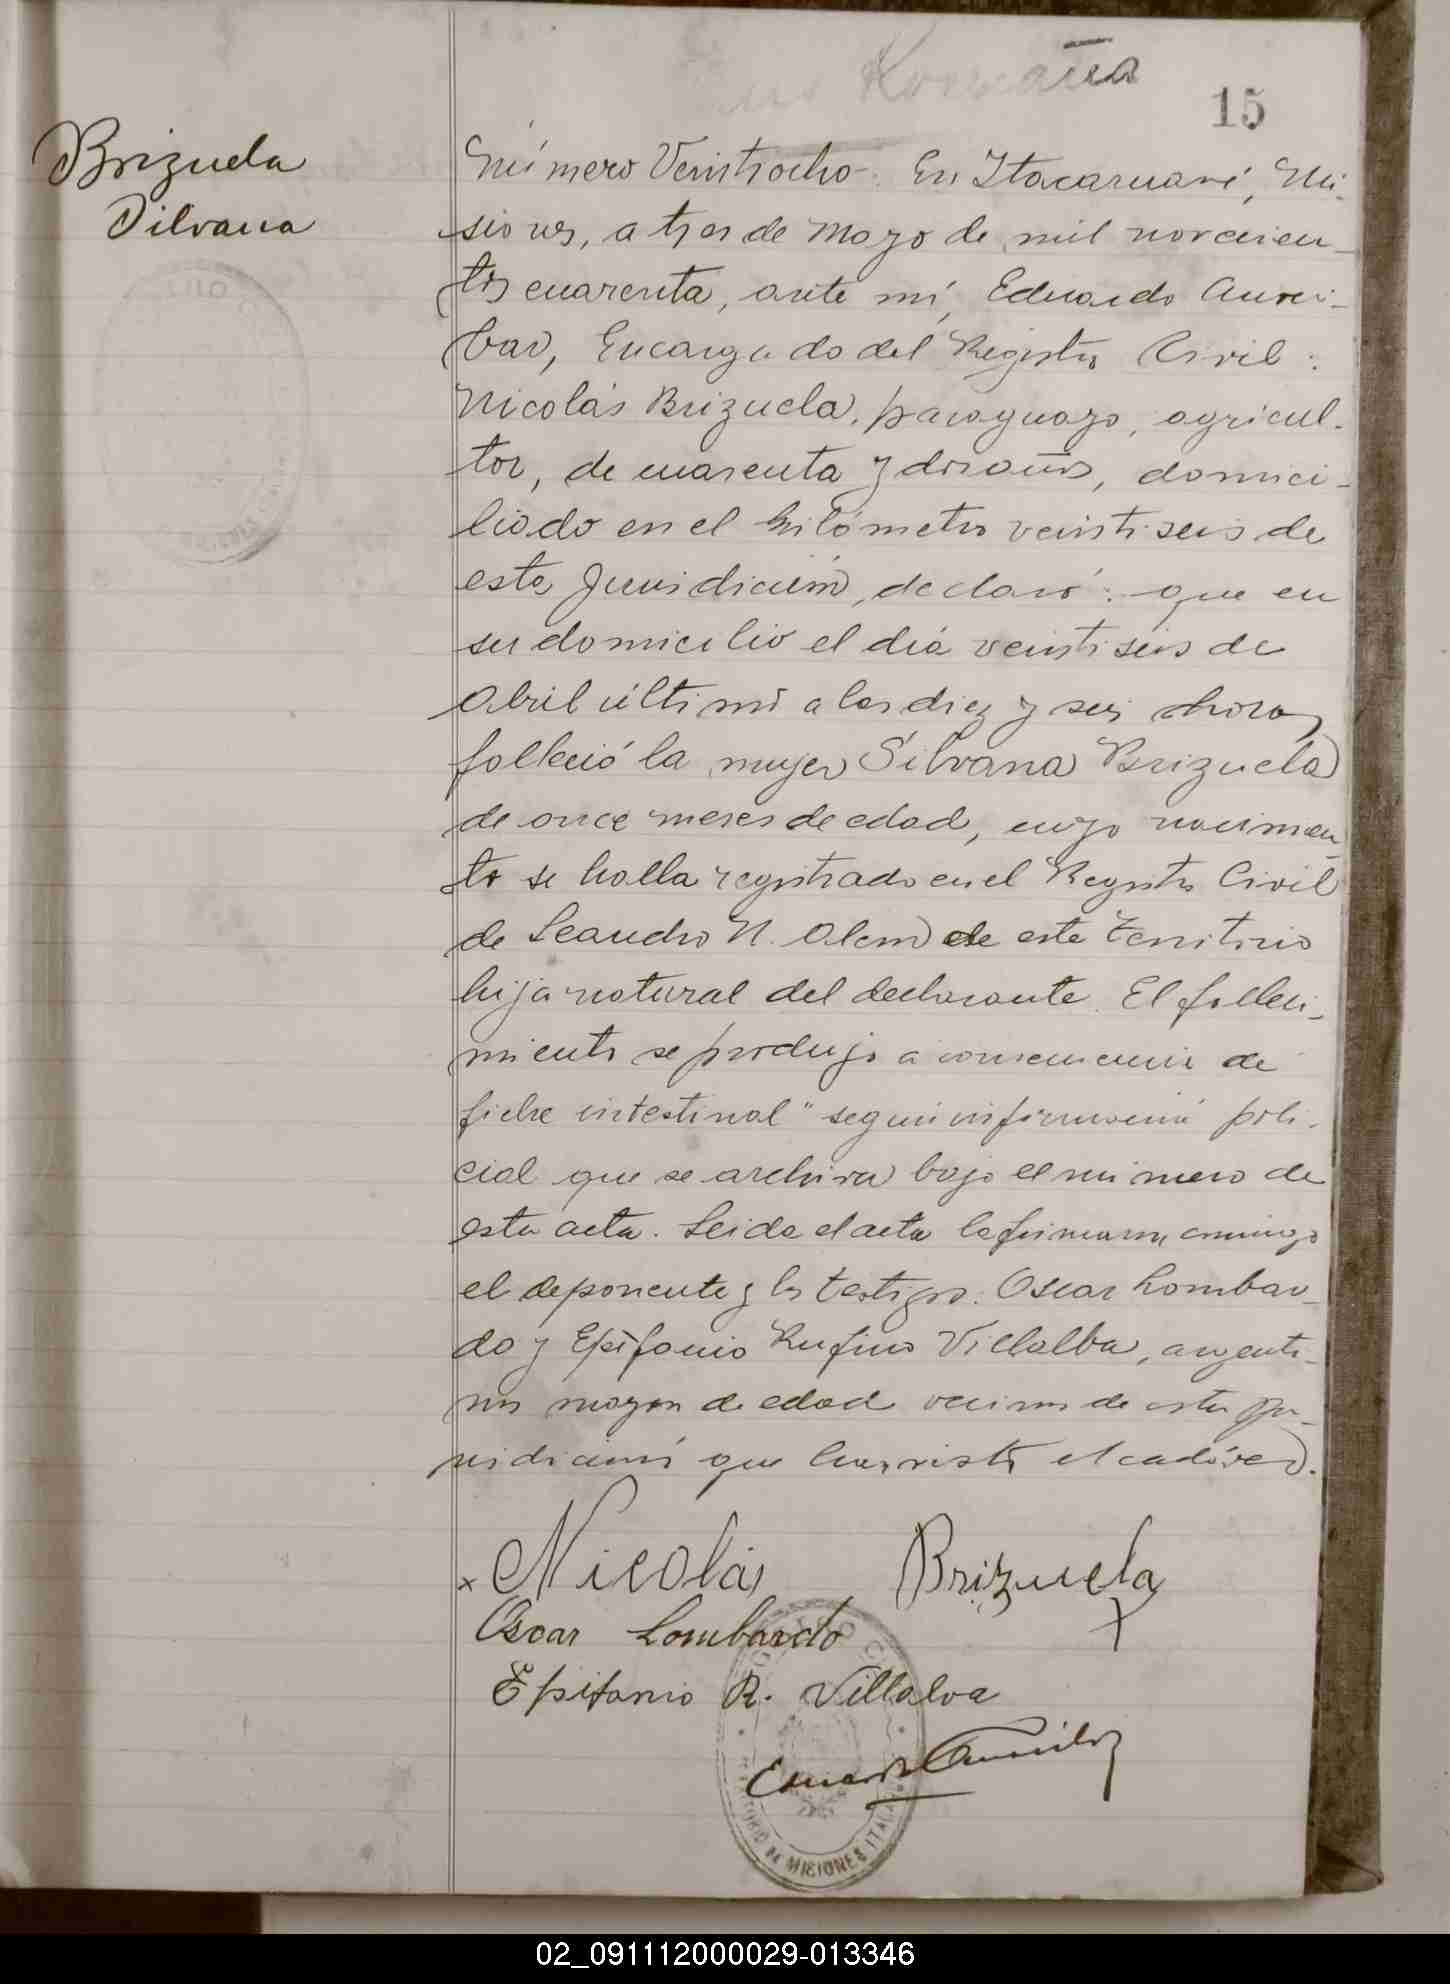 15
Brizuela
Silvana
Número Veintiocho. En Itacaruaré, Mi-
siones, a tres de Mayo de mil novecien-
tos cuarenta, ante mí, Eduardo
Encargado del Registro Civil:
Nicolás Brizuela, paraguayo, agricul-
tor, de cuarenta y dos años, domici-
liado en el kilómetro veintiseis de
esta Jurisdicción, declaró: que en
su domicilio el día veintiseis de
Abril último a las diez y seis horas
falleció la mujer Silvana Brizuela
de once meses de edad, cuyo nacimien-
to se halla registrado en el Registro Civil
de Leandro N. Alem de este Territorio
hija natural del declarante. El falleci-
miento se produjo a consecuencia de
fiebre intestinal" según información poli-
cial que se archiva bajo el número de
esta acta. Leida el acta la firmaron conmigo
el deponente y los testigos: Oscar Lombar-
do y Epifanio Rufino Villalba, argenti-
nos mayores de edad vecinos de esta ju-
risdicción que han visto el cadáver.
x Nicolás Brizuela
x
Oscar Lombardo
Epifanio R. Villalva
Eduardo
TERRITORIO DE MISIONES
02_091112000029-013346